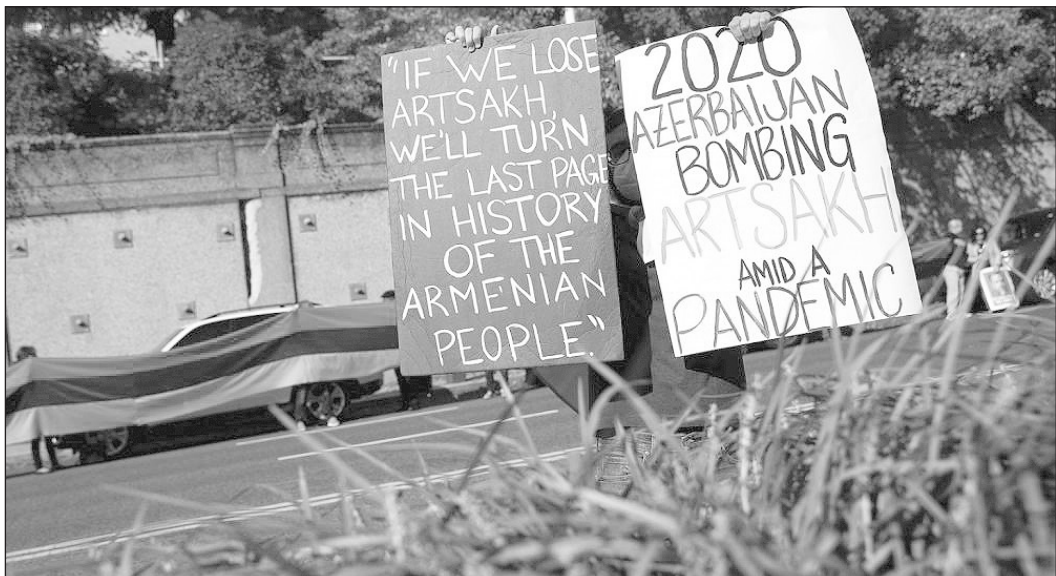 "IF WE LOSE
ARTSAKH,
WE'LL TURN
THE LAST PAGE
IN HISTORY
OF THE
ARMENIAN
PEOPLE."
2020
AZERBAIJAN
BOMBING
ARTSAKH
AMID A
PANDEMIC